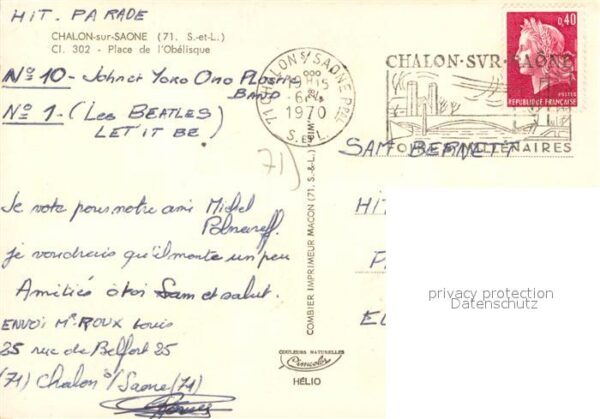 HIT. PARADE
CHALON-sur-SAONE (71. S.-et-L.)
Cl. 302 - Place de l'Obélisque
No 10 - John et Yoko Ono Plastic
Band
No 1 - (Les BEATLES)
LET IT BE)
71)
Je vote pour notre ami Michel
Polnareff.
je voudrais qu'il monte un peu
Amitiés à toi Sam et salut.
ENVOI Mr ROUX Louis
25 rue de Belfort 25
(71) Chalon s/Saone (71)
COMBIER IMPRIMEUR MACON (71. S.-&-L.)
COULEURS NATURELLES
Cimcolor
HÉLIO
71 CHALON S/ SAONE PPAL
1970
S. et L.
CHALON-SVR-SAÔNE
MILLÉNAIRES
0,40
POSTES
REPUBLIQUE FRANÇAISE
SAM BERNETT
HIT
privacy protection
Datenschutz